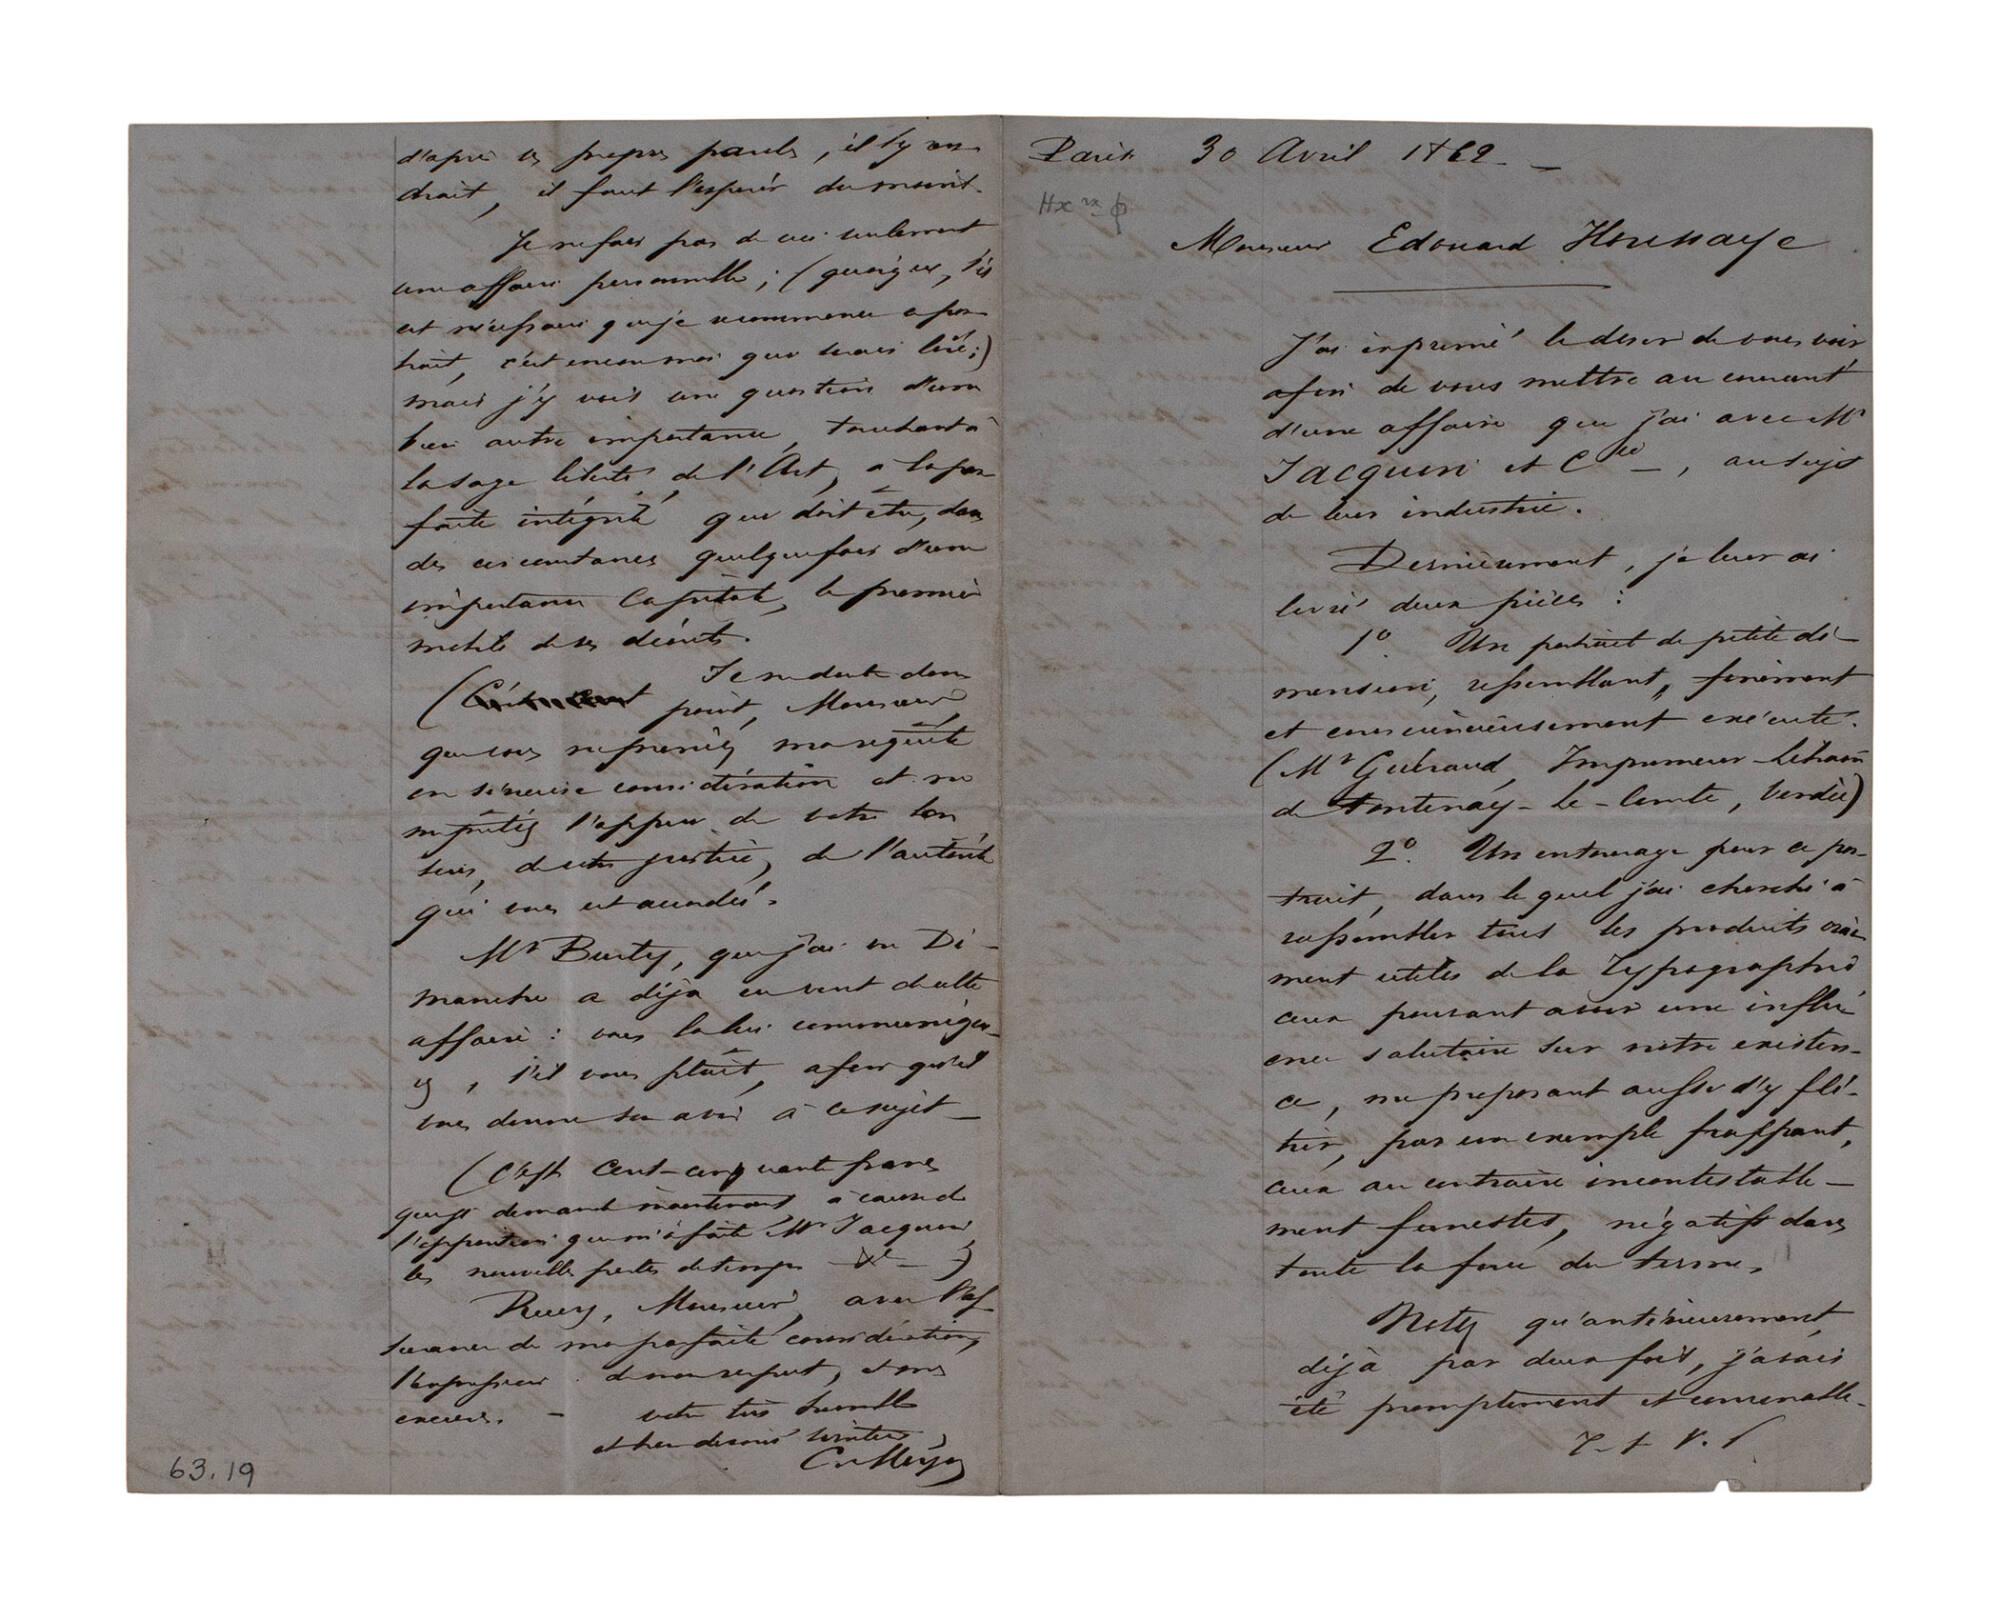 Paris 30 Avril 1862 —
Monsieur Edouard Houssaye
J'ai exprimé le desir de vous voir,
afin de vous mettre au courant
d'une affaire que j'ai avec Mr
Jacquin et Cie —, au sujet
de leur industrie.
Dernièrement, je leur ai
livré deux pièces :
1o. Un portrait de petite di-
mension, ressemblant, finement
et consciencieusement exécuté.
(Mr Guéraud, Imprimeur-Libraire
de Fontenay-le-Comte, Vendée)
2o. Un entourage pour ce por-
trait, dans le quel j'ai cherché à
rassembler tous les produits vrai-
ment utiles de la Typographie
ceux pouvant avoir une influ-
ence salutaire sur notre existen-
ce, me proposant aussi d'y flé-
trir, par un exemple frappant,
ceux au contraire incontestable-
ment funestes, négatifs dans
toute la force du terme.
Notez qu'antérieurement,
déjà par deux fois, j'avais
été promptement et convenable-
T. S. V. P.
d'après ses propres paroles, il s'y ren-
drait, il faut l'espérer du moins.
Je ne fais pas de ceci seulement
une affaire personnelle ; (quoique, s'il
est nécessaire que je recommence ce por-
trait, c'est encore moi qui serais lésé ;)
mais j'y vois une question d'une
bien autre importance, touchant à
la sage liberté de l'Art, à la par-
faite intégrité qui doit être, dans
des circonstances quelquefois d'une
importance Capitale, le premier
mobile de ses décrets.
Je ne doute donc
point, Monsieur,
que vous ne preniez ma requête
en sérieuse considération et ne
me prêtiez l'appui de votre bon
sens, de votre justice, de l'autorité
qui vous est accordée.
Mr Burty, que j'ai vu Di-
manche a déjà eu vent de cette
affaire : vous la lui communique-
rez, s'il vous plaît, afin qu'il
vous donne son avis à ce sujet —
(C'est Cent-cinquante francs
que je demande maintenant, à cause de
l'opposition que m'a faite Mr Jacquin,
les nouvelles pertes de temps &c — )
Recevez, Monsieur, avec l'as-
surance de ma parfaite considération,
l'expression de mon respect, et mes
excuses. — votre très humble
et bien dévoué serviteur,
C. Meryon
63.19